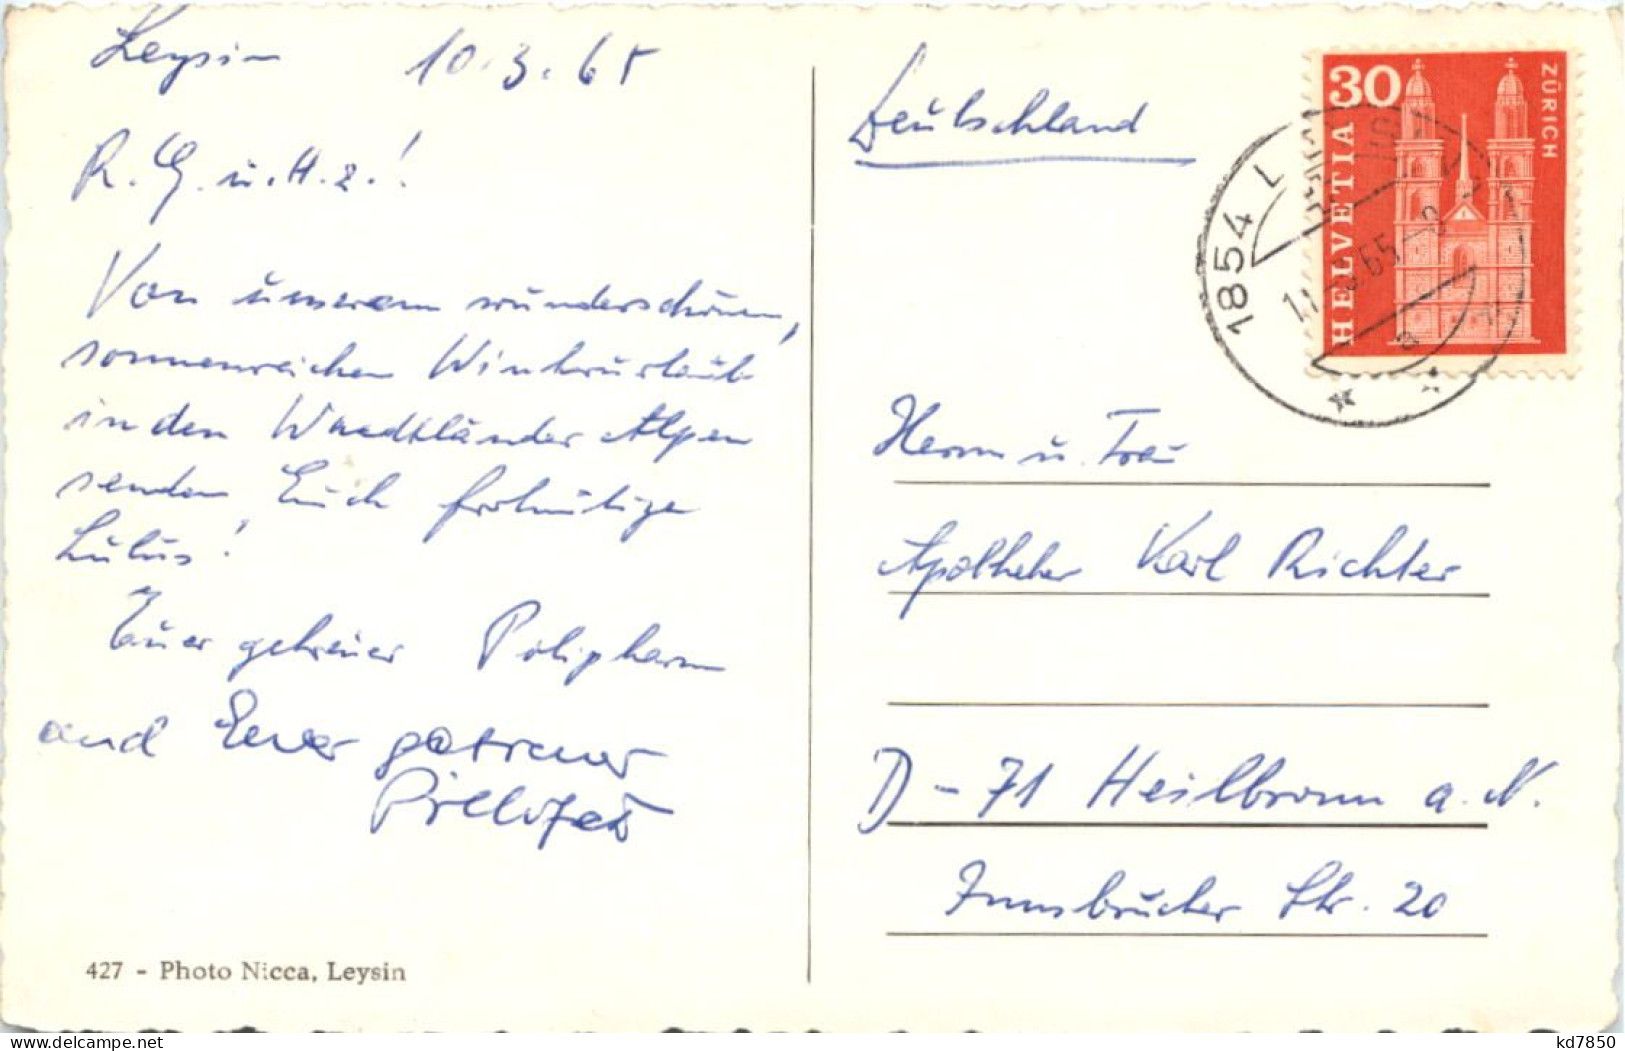 Leysin 10.3.65
R. G. u. H. z.!
Von unserem wunderschönen,
sonnenreichen Winterurlaub
in den Waadtländer Alpen
senden Euch frohmütige
Lulus!
Euer getreuer Polipharm
und Euer getreuer
427 - Photo Nicca, Leysin
Deutschland
30
HELVETIA
ZÜRICH
1854
Herrn u. Frau
Apotheker Karl Richter
D-71 Heilbronn a. N.
Innsbrucker Str. 20
kd7850